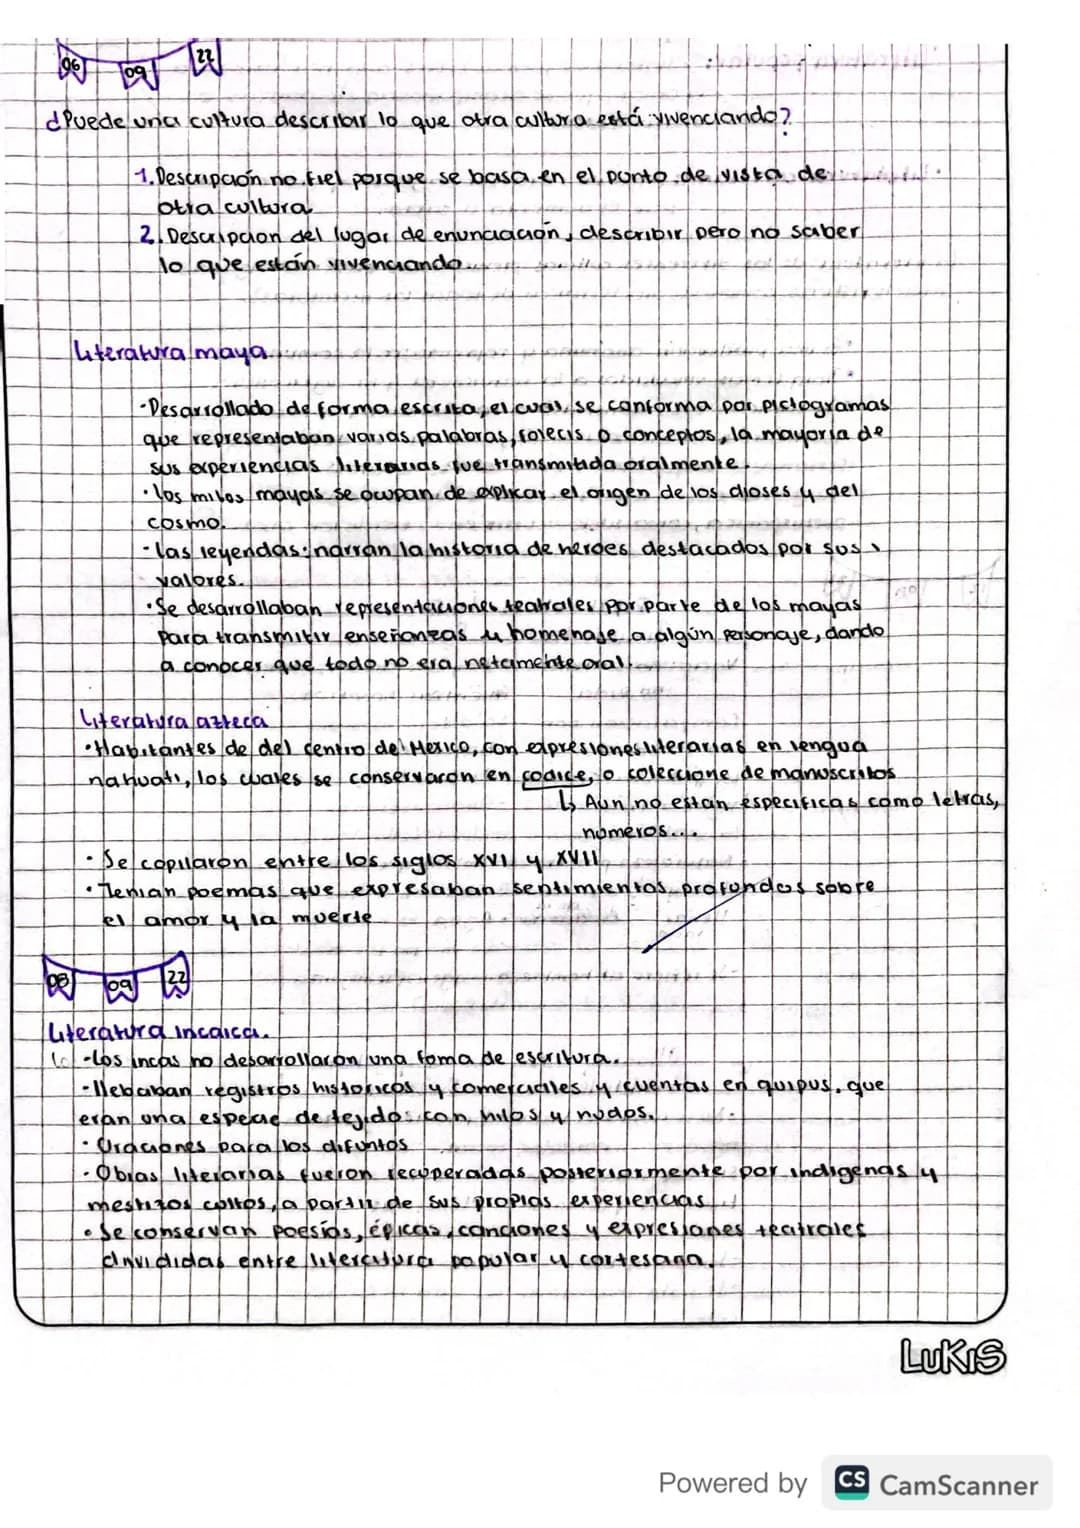 06 09 22
¿Puede una cultura describir lo que otra cultura está vivenciando?
1. Descripción no fiel porque se basa en el punto de vista de
otra cultura
2. Descripcion del lugar de enunciación, describir pero no saber
lo que están vivenciando
Literatura maya
-Desarrollado de forma escrita, el cual se conforma por pictogramas
que representaban varias palabras, o conceptos, la mayoria de
sus experiencias literarias fue transmitida oralmente.
• los mitos mayas se ocupan de explicar el origen de los dioses y del
cosmo.
- las leyendas: narran la historia de heroes destacados por sus
valores.
• Se desarrollaban representaciones teatrales por parte de los mayas
para transmitir enseñanzas y homenaje a algún personaje, dando
a conocer que todo no era netamente oral.
Literatura azteca
• Habitantes de del centro de Mexico, con expresiones literarias en lengua
nahuatl, los cuales se conservaron en codice, o coleccione de manuscritos
↳ Aun no estan especificas como letras,
numeros...
• Se copilaron entre los siglos XVI y XVII
• Tenian poemas que expresaban sentimientos profundos sobre
el amor y la muerte
08 09 22
Literatura incaica.
-los incas no desarrollaron una foma de escritura.
-llebaban registros historicos y comerciales y cuentas en quipus, que
eran una especie de tejidos con hilos y nudos.
• Oraciones para los difuntos
• Obras literarias fueron recuperadas posteriormente por indigenas y
mestizos cultos, a partir de sus propias experiencias
• Se conservan poesías, épicas, canciones y expresiones teatrales
divididas entre literatura popular y cortesana.
LUKIS
Powered by CS CamScanner